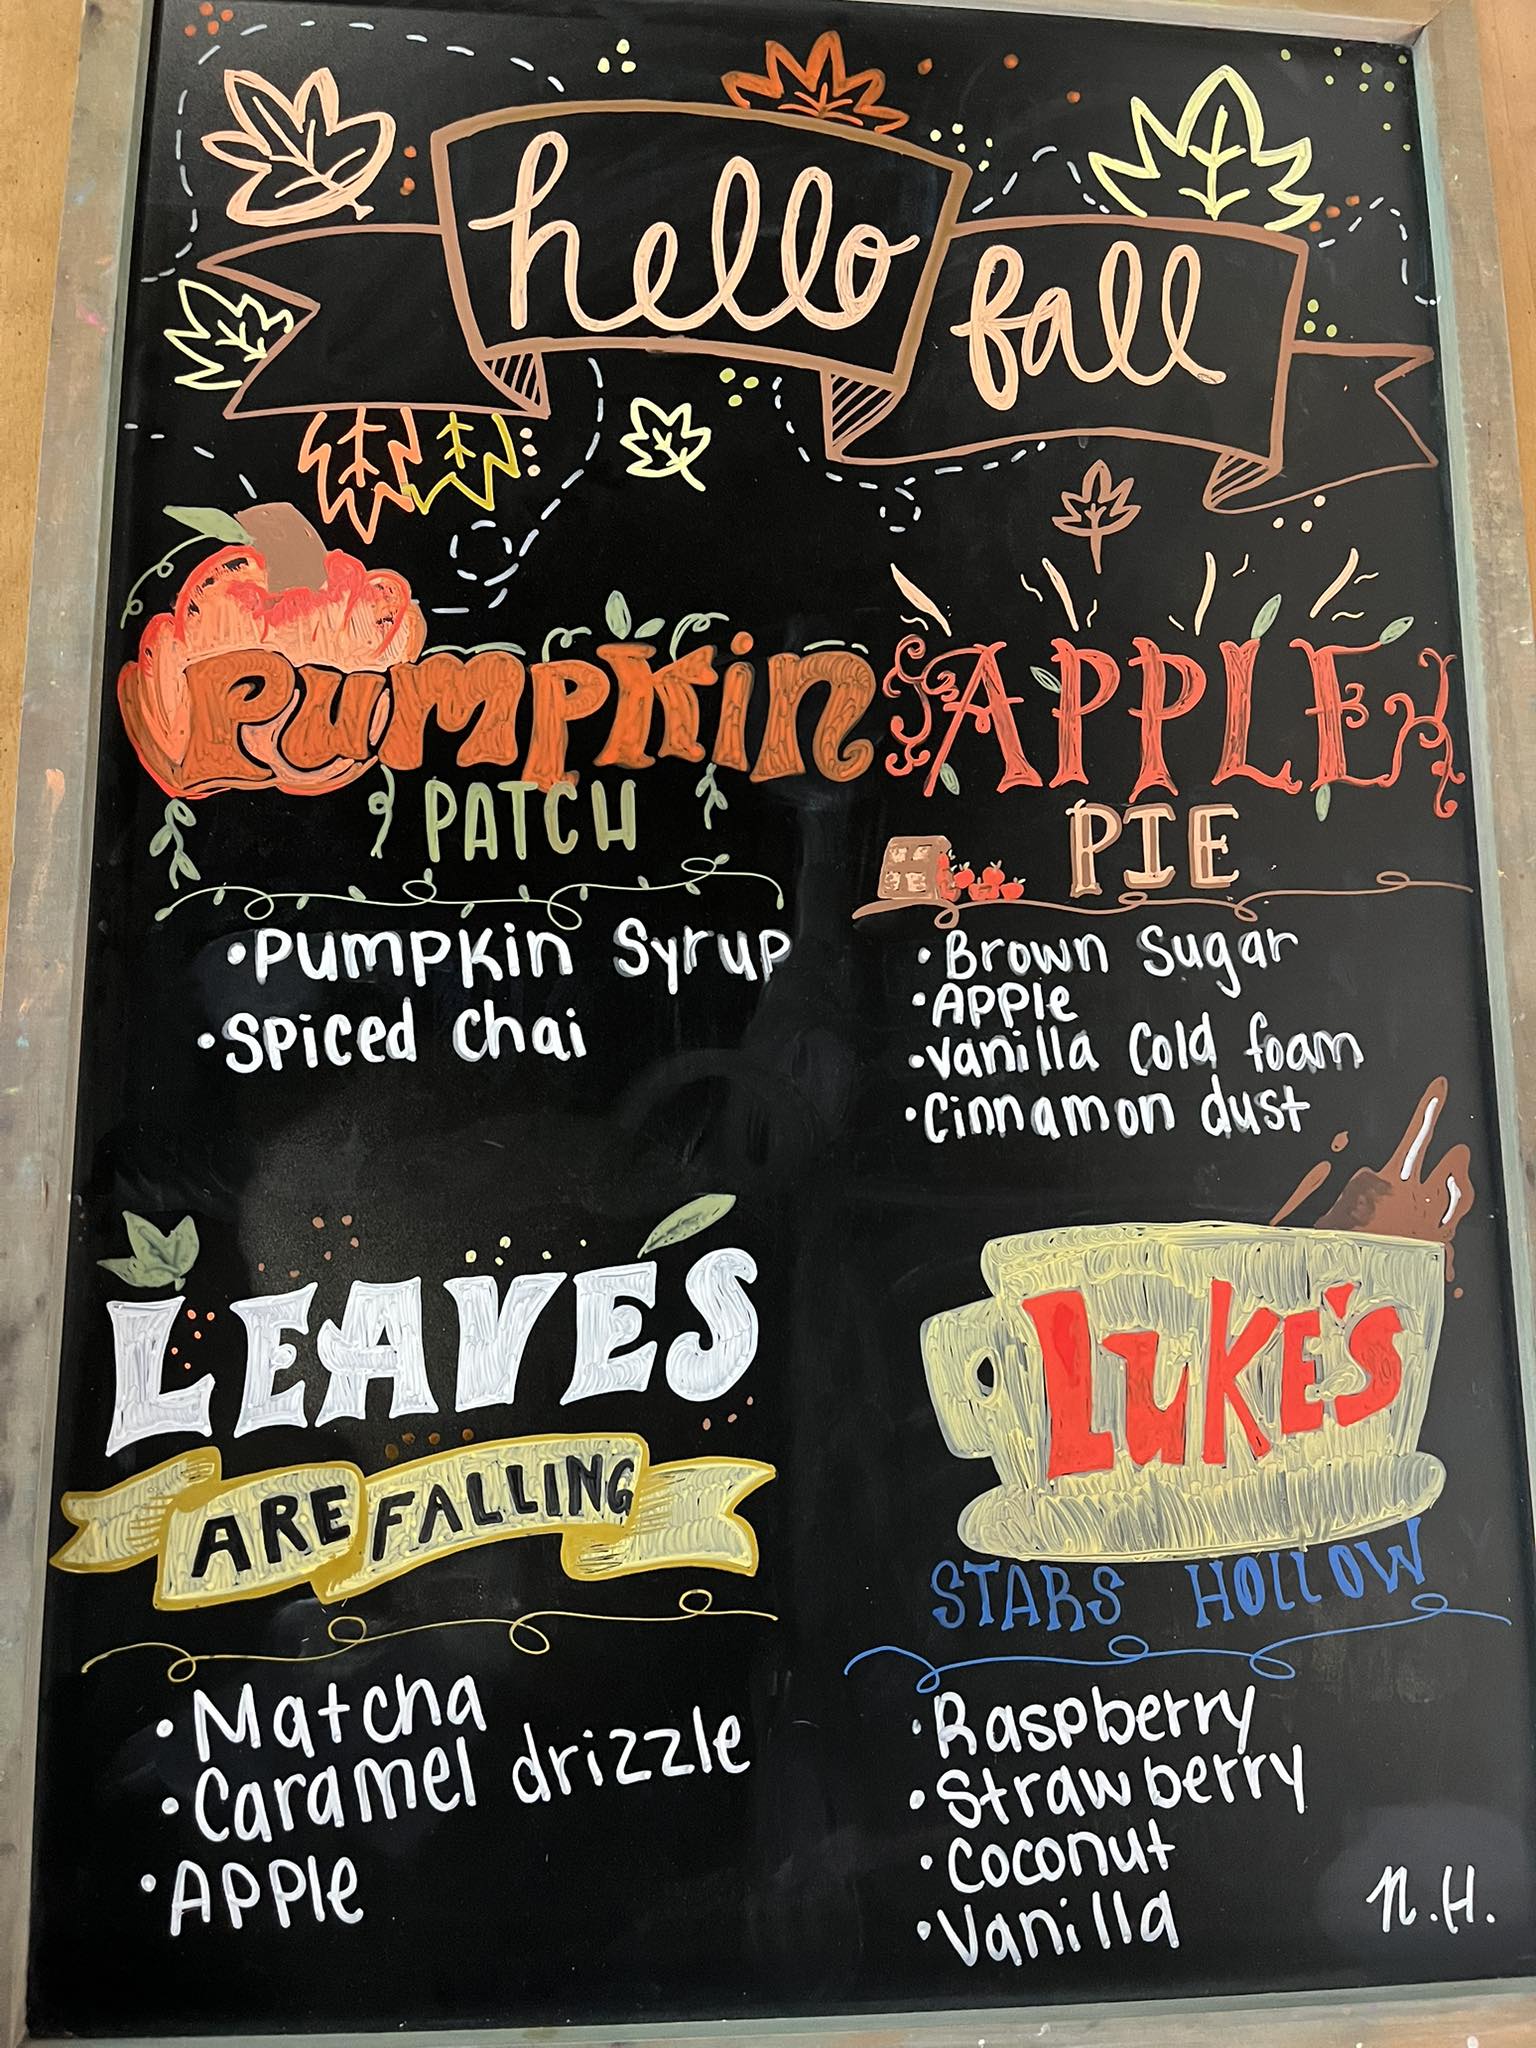 hello fall
Pumpkin
PATCH
• Pumpkin Syrup
• Spiced Chai
APPLE
PIE
• Brown Sugar
• Apple
• Vanilla Cold foam
• Cinnamon dust
LEAVES
ARE FALLING
• Matcha
• Caramel drizzle
• Apple
LUKE'S
STARS HOLLOW
• Raspberry
• Strawberry
• Coconut
• Vanilla
N.H.